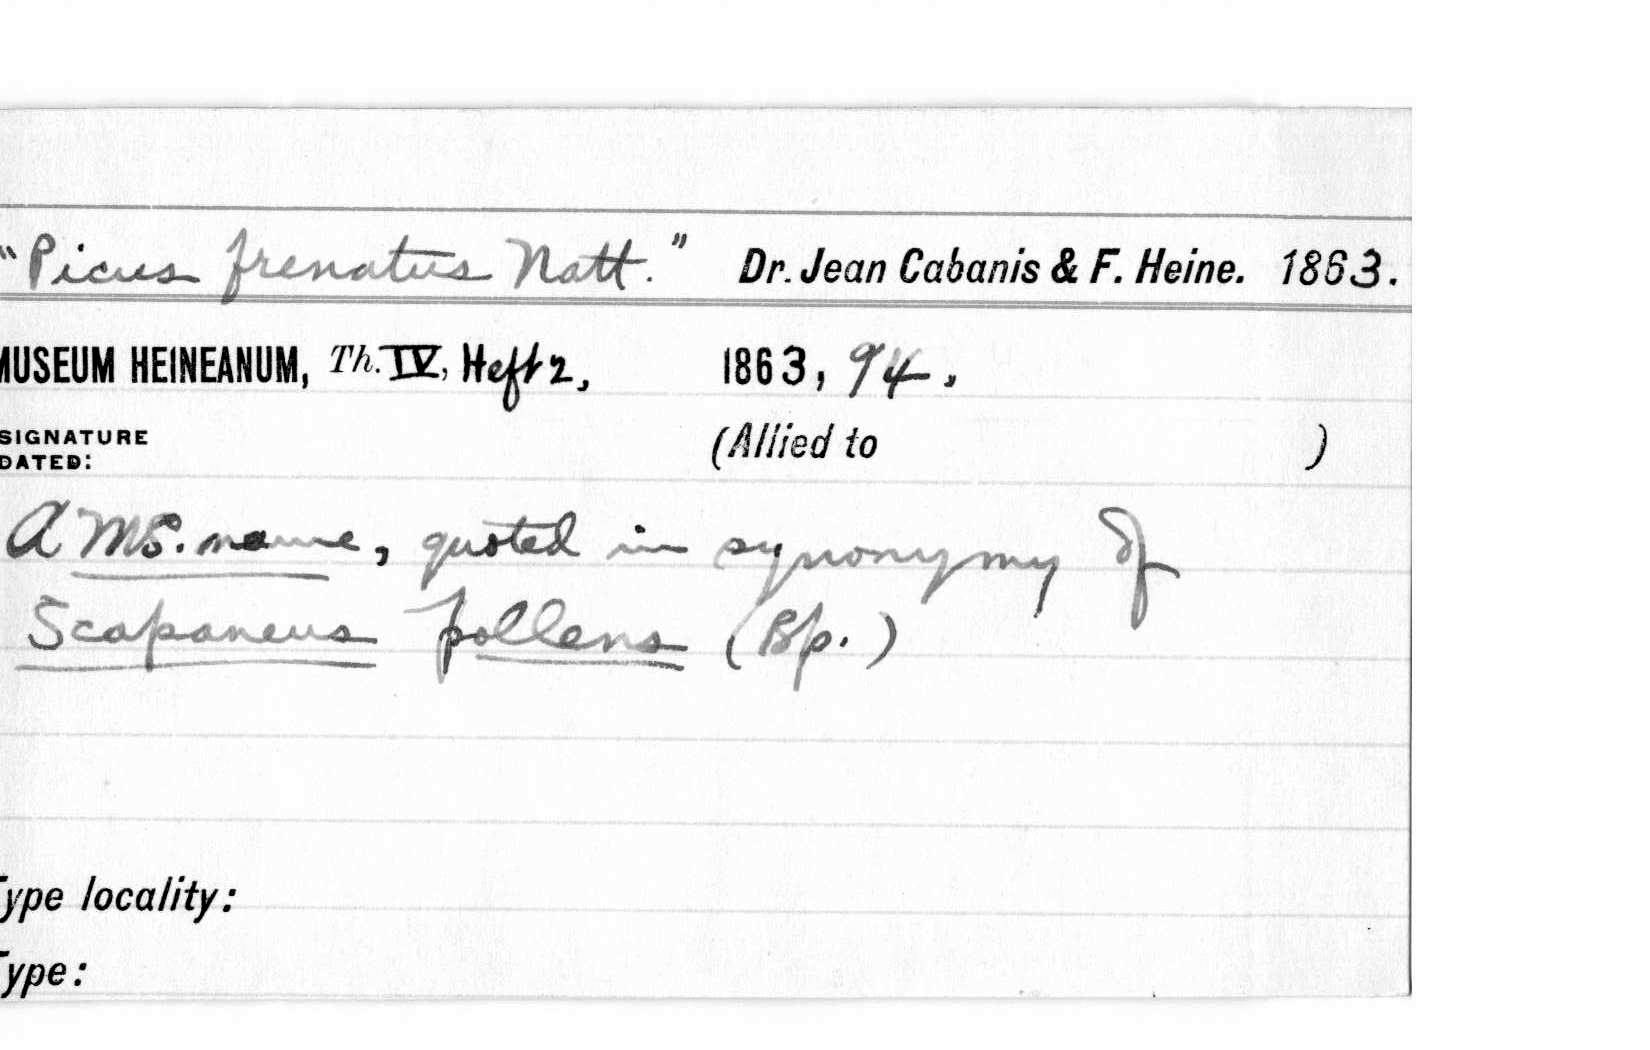 "Picus frenatus Natt." Dr. Jean Cabanis & F. Heine. 1863.
MUSEUM HEINEANUM, Th. IV, Heft 2, 1863, 94.
SIGNATURE
DATED:
(Allied to )
A MS. name, quoted in synonymy of
Scapaneus pollens (Bp.)
Type locality:
Type: